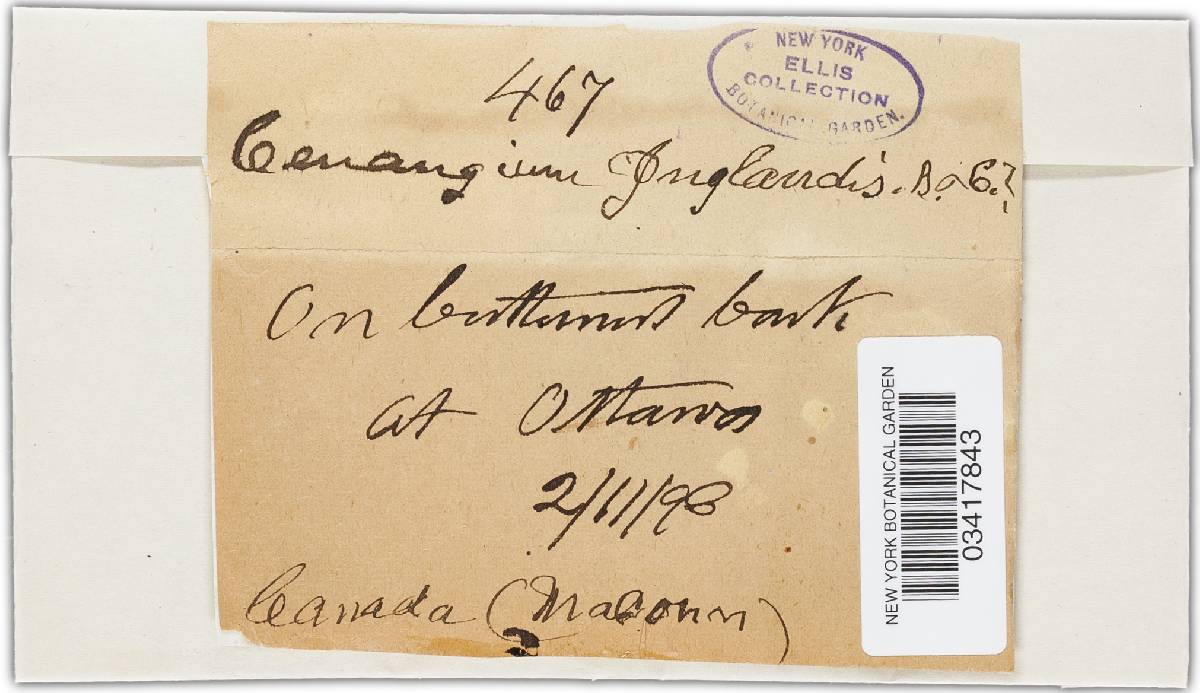 467
NEW YORK
ELLIS
COLLECTION
BOTANICAL GARDEN.
Cenangium Juglandis. B. & C.?
On butternut bark
at Ottawa
2/11/98
Canada (Macoun)
NEW YORK BOTANICAL GARDEN
03417843